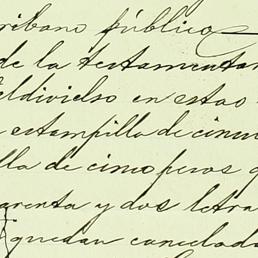 cribano público
de la testamentar
eldivielso en estas
estampilla de cincu
lla de cinco pesos q
arenta y dos letra
quedan cancelada